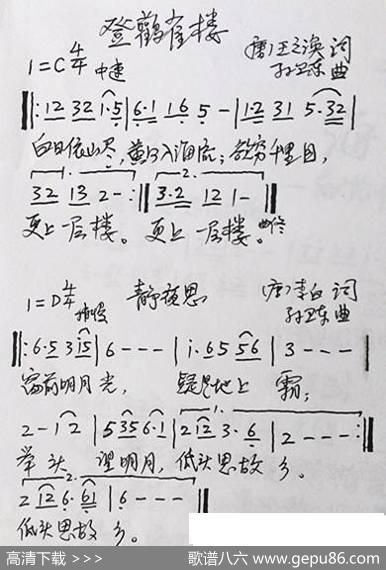 登鹳雀楼
1=C 4/4 中速
(唐)王之涣 词
孙卫东 曲
‖: 12 32 1·5 | 6·1 16 5 - | 1·2 31 5·32 |
白日依山尽,黄河入海流;欲穷千里目,
1. 32 13 2 - :‖ 2. 3·2 12 1 - ‖
更上一层楼。更上一层楼。
1=D 4/4 稍慢
静夜思
(唐)李白 词
孙卫东 曲
‖: 6·5 3 15 | 6 - - - | i·6 5 56 | 3 - - - |
窗前明月光, 疑是地上霜;
2 - 1 2 | 5 35 6·1 | 1. 2 12 3·6 | 2 - - - :‖
举头 望明月,低头思故乡。
2. 2 12 6·61 | 6 - - - ‖
低头思故乡。
高清下载 >>>
歌谱八六 www.gepu86.com